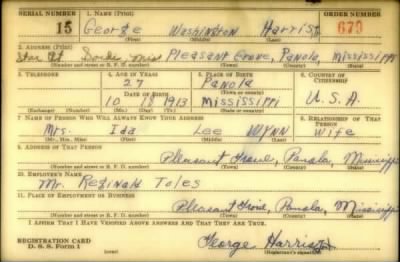 SERIAL NUMBER 1. NAME (Print) ORDER NUMBER
15 George Washington Harris Jr 670
(First) (Middle) (Last)
2. ADDRESS (Print)
Star Rt Sardis Miss Pleasant Grove, Panola, Mississippi
(Number and street or R. F. D. number) (Town) (County) (State)
3. TELEPHONE 4. AGE IN YEARS 5. PLACE OF BIRTH 6. COUNTRY OF CITIZENSHIP
27 Panola
(Town or county)
DATE OF BIRTH
10 18 1913 Mississippi U.S.A.
(Exchange) (Number) (Mo.) (Day) (Yr.) (State or country)
7. NAME OF PERSON WHO WILL ALWAYS KNOW YOUR ADDRESS 8. RELATIONSHIP OF THAT PERSON
Mrs. Ida Lee Wynn Wife
(Mr., Mrs., Miss) (First) (Middle) (Last)
9. ADDRESS OF THAT PERSON
Pleasant Grove, Panola, Mississippi
(Number and street or R. F. D. number) (Town) (County) (State)
10. EMPLOYER'S NAME
Mr. Reginald Toles
11. PLACE OF EMPLOYMENT OR BUSINESS
Pleasant Grove, Panola, Mississippi
(Number and street or R. F. D. number) (Town) (County) (State)
I AFFIRM THAT I HAVE VERIFIED ABOVE ANSWERS AND THAT THEY ARE TRUE.
REGISTRATION CARD
D. S. S. Form 1 George Harris Jr
(Registrant's signature)